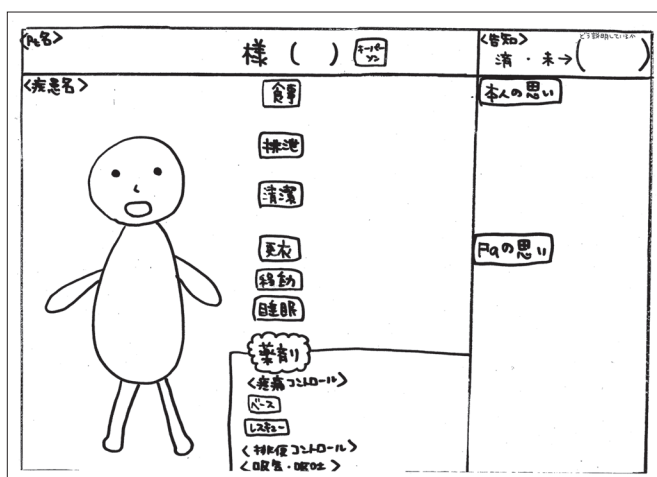 <Pt名>
様 ( ) キーパーソン
<告知>
どう説明しているか
済・未→( )
<疾患名>
食事
排泄
清潔
更衣
移動
睡眠
薬剤
<疼痛コントロール>
ベース
レスキュー
<排便コントロール>
<嘔気・嘔吐>
本人の思い
Faの思い